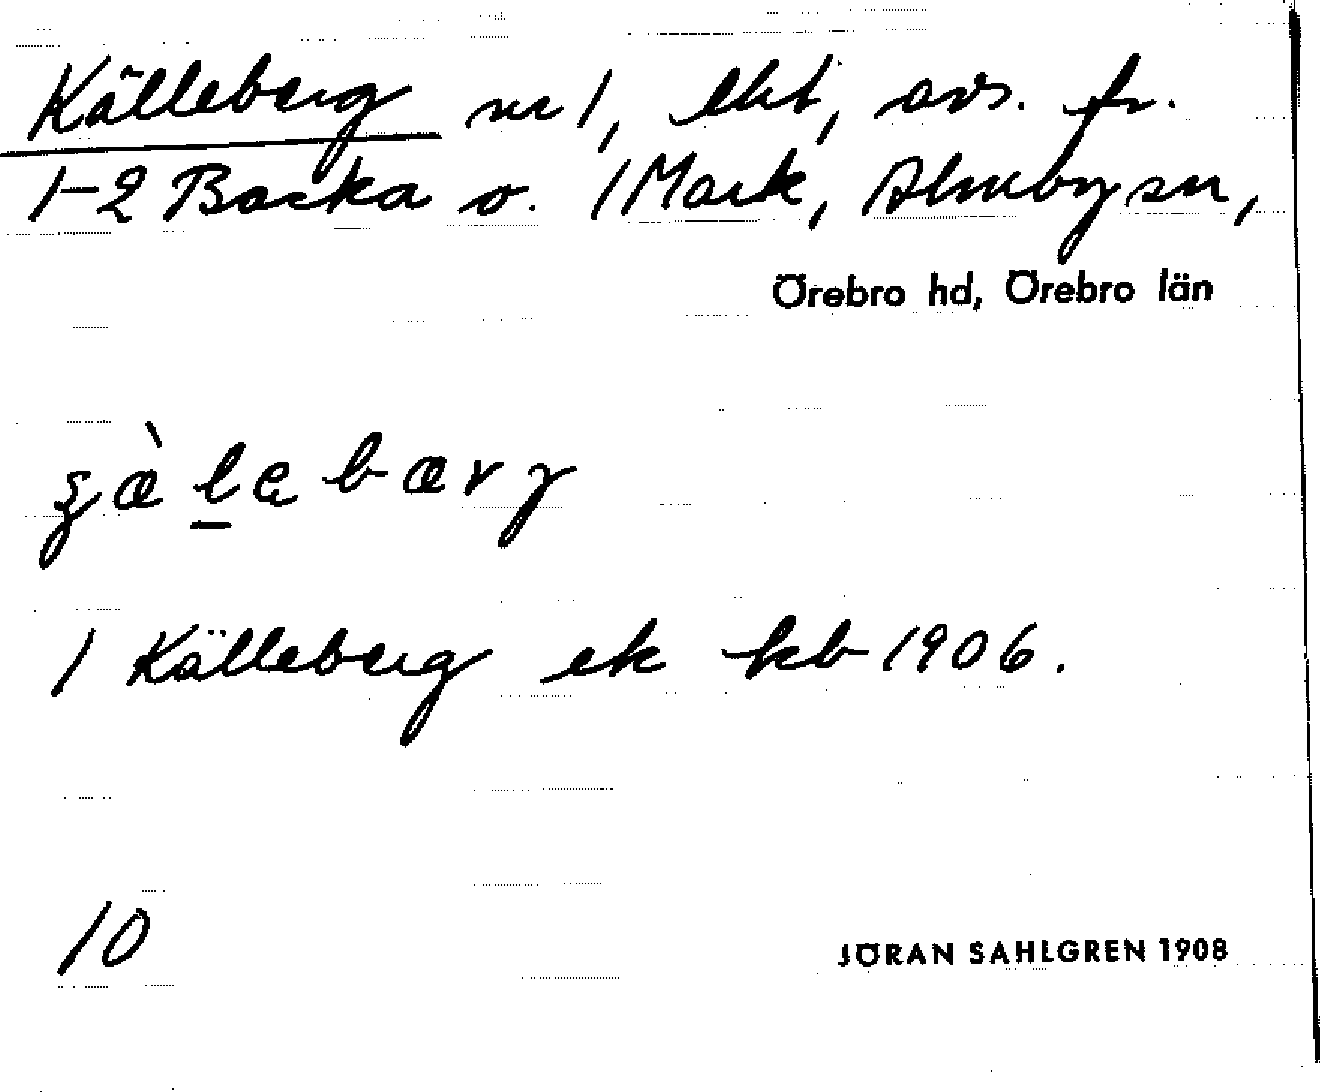 Källeberg nr 1, lht, avs. fr.
1-2 Backa o. 1 Mark, Almby sn,
Örebro hd, Örebro län
ʂæ̀lebærɣ
1 Källeberg ek kb 1906.
10
JÖRAN SAHLGREN 1908